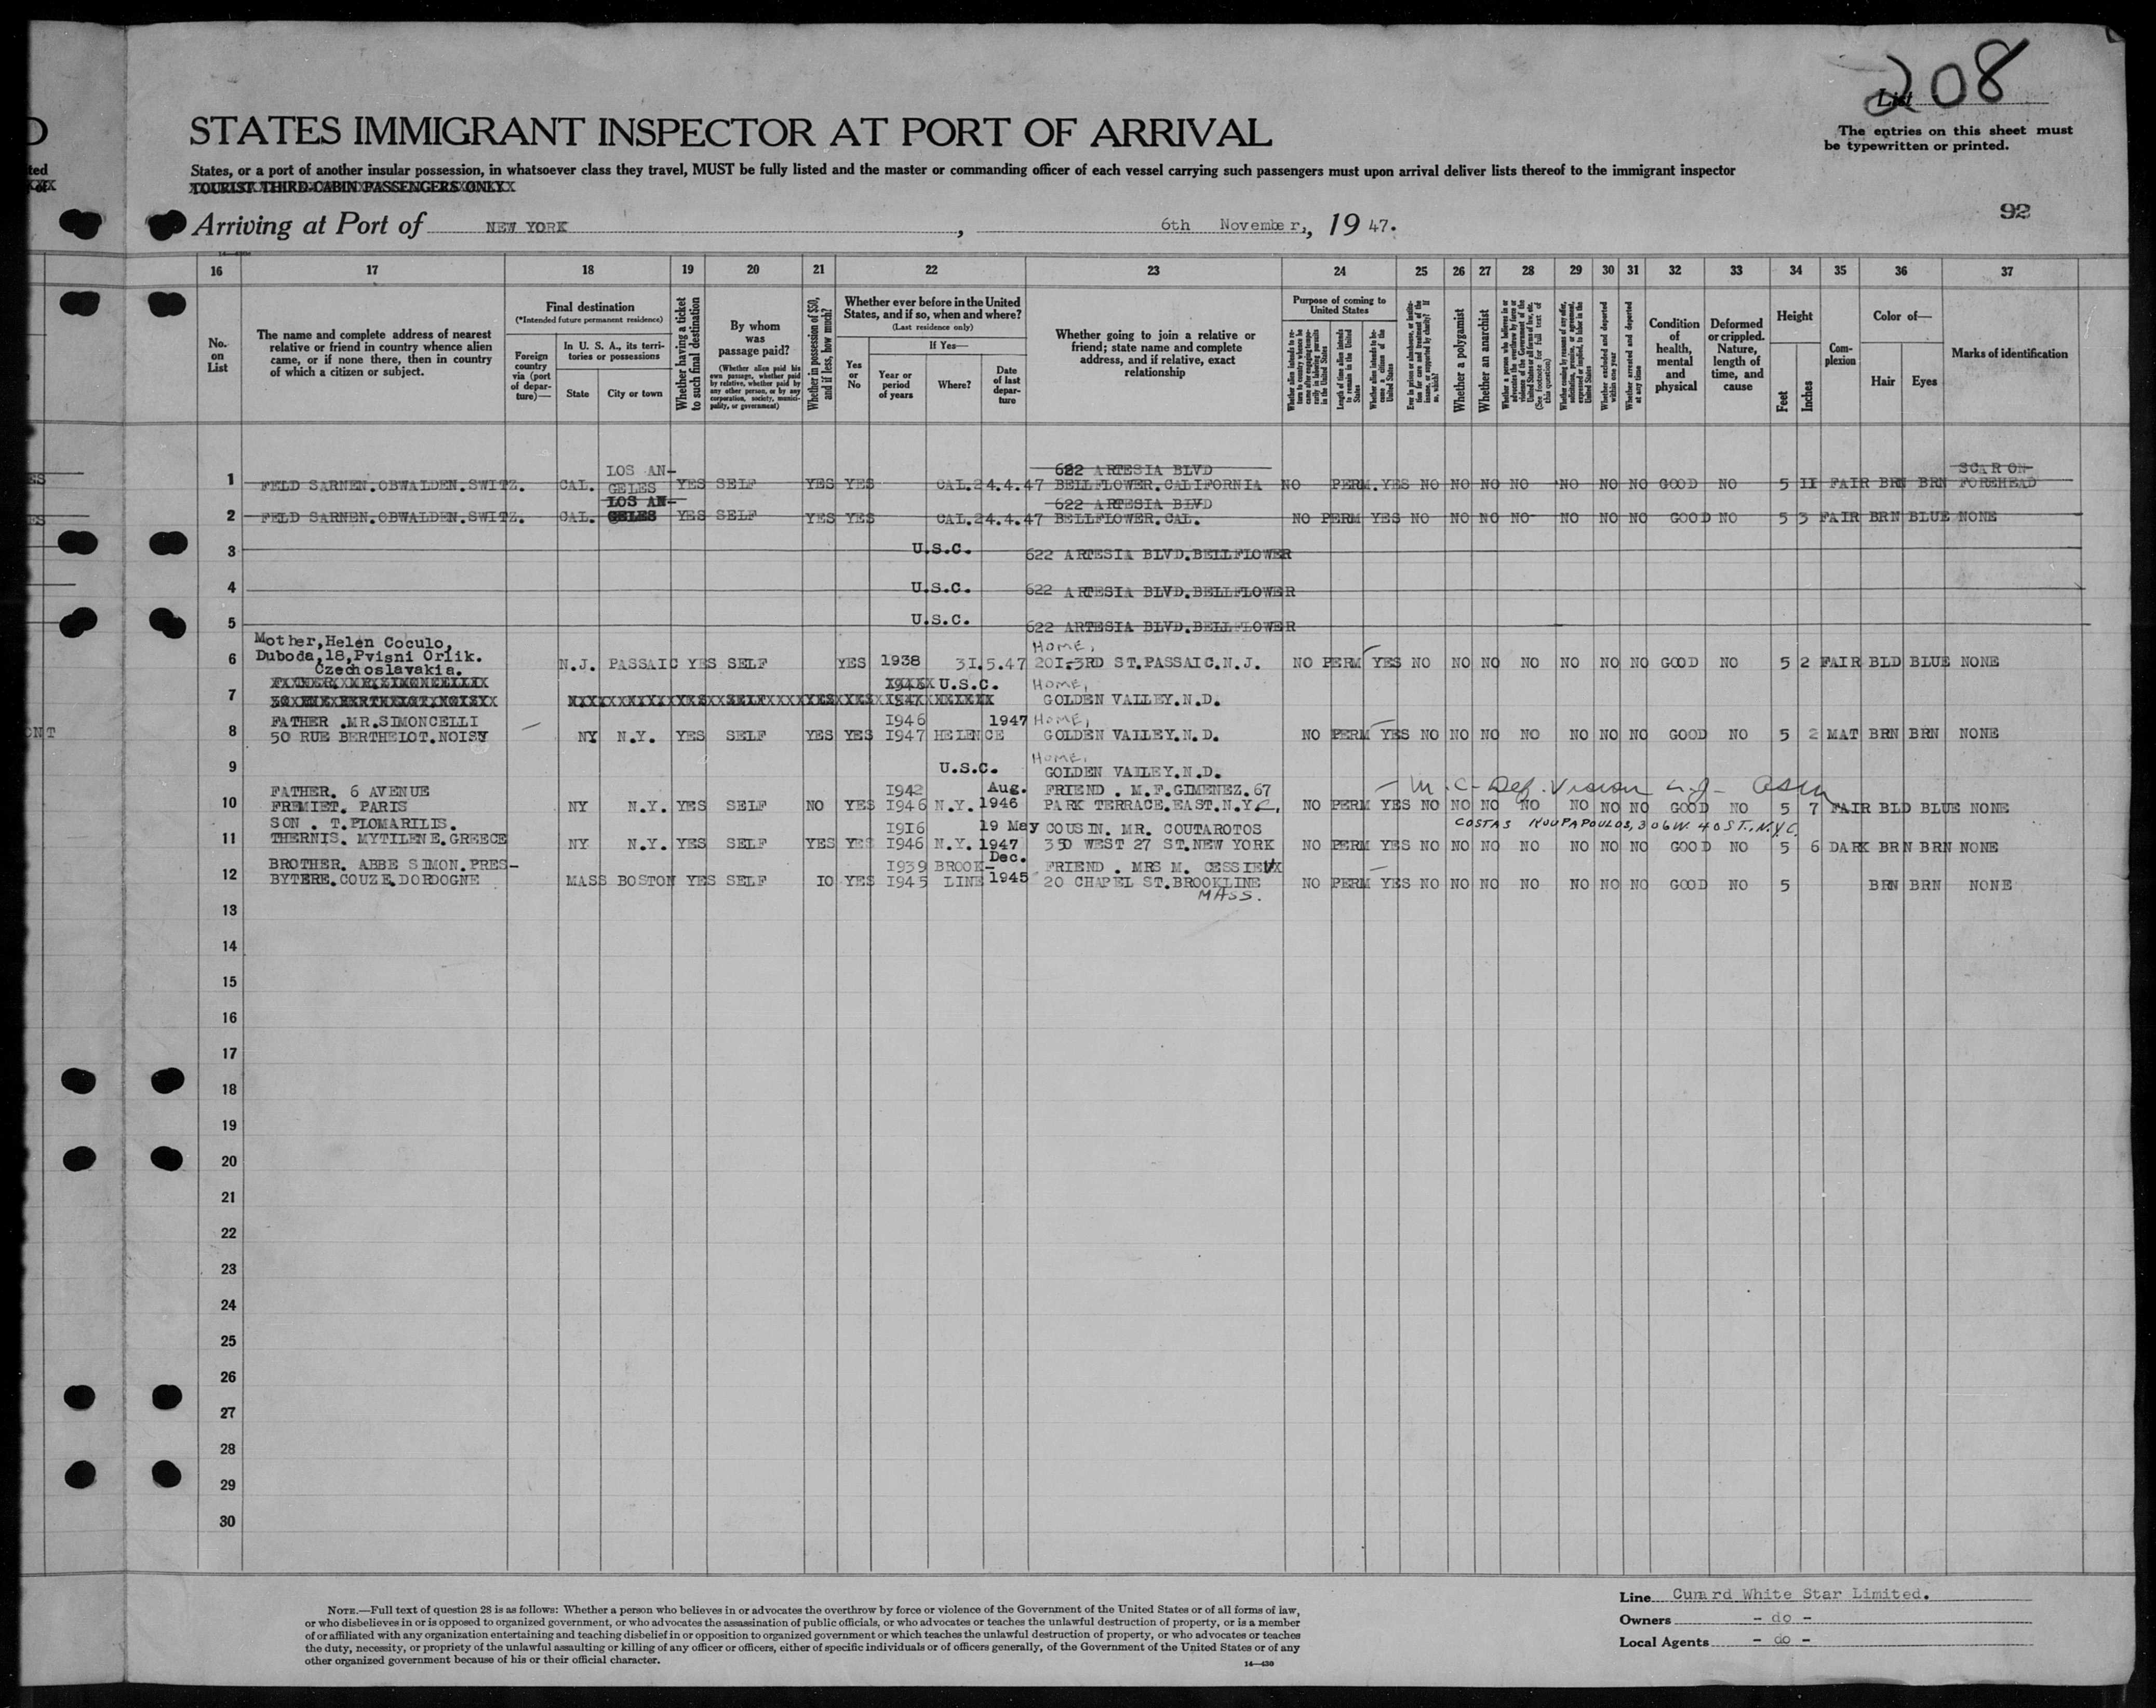 208
List
The entries on this sheet must
be typewritten or printed.
STATES IMMIGRANT INSPECTOR AT PORT OF ARRIVAL
States, or a port of another insular possession, in whatsoever class they travel, MUST be fully listed and the master or commanding officer of each vessel carrying such passengers must upon arrival deliver lists thereof to the immigrant inspector
TOURIST THIRD-CABIN PASSENGERS ONLY
92
Arriving at Port of NEW YORK, 6th November, 1947.
16 17 18 19 20 21 22 23 24 25 26 27 28 29 30 31 32 33 34 35 36 37
No. on List
The name and complete address of nearest
relative or friend in country whence alien
came, or if none there, then in country
of which a citizen or subject.
Final destination
(*Intended future permanent residence)
Foreign country via (port of departure)—
In U. S. A., its territories or possessions
State
City or town
Whether having a ticket to such final destination
By whom was passage paid?
(Whether alien paid his own passage, whether paid by relative, whether paid by any other person, or by any corporation, society, municipality, or government)
Whether in possession of $50, and if less, how much?
Whether ever before in the United States, and if so, when and where?
(Last residence only)
Yes or No
If Yes—
Year or period of years
Where?
Date of last departure
Whether going to join a relative or
friend; state name and complete
address, and if relative, exact
relationship
Purpose of coming to United States
Whether a polygamist
Whether an anarchist
Condition of health, mental and physical
Deformed or crippled. Nature, length of time, and cause
Height
Feet
Inches
Complexion
Color of—
Hair
Eyes
Marks of identification
LOS AN- 622 ARTESIA BLVD SCAR ON
1 FELD SARNEN.OBWALDEN.SWITZ. CAL. GELES YES SELF YES YES CAL.24.4.47 BELLFLOWER.CALIFORNIA NO PERM. YES NO NO NO NO NO NO NO GOOD NO 5 II FAIR BRN BRN FOREHEAD
LOS AN- 622 ARTESIA BLVD
2 FELD SARNEN.OBWALDEN.SWITZ. CAL. GELES YES SELF YES YES CAL.24.4.47 BELLFLOWER.CAL. NO PERM YES NO NO NO NO NO NO NO GOOD NO 5 3 FAIR BRN BLUE NONE
3 U.S.C. 622 ARTESIA BLVD.BELLFLOWER
4 U.S.C. 622 ARTESIA BLVD.BELLFLOWER
5 U.S.C. 622 ARTESIA BLVD.BELLFLOWER
Mother,Helen Coculo, Home,
Duboda,18,Pvisni Orlik.
6 Czechoslavakia. N.J. PASSAIC YES SELF YES 1938 3I.5.47 20I-3RD ST.PASSAIC.N.J. NO PERM YES NO NO NO NO NO NO NO GOOD NO 5 2 FAIR BLD BLUE NONE
U.S.C. Home,
7 GOLDEN VALLEY.N.D.
FATHER .MR.SIMONCELLI I946 1947 Home,
8 50 RUE BERTHELOT.NOISY NY N.Y. YES SELF YES YES I947 HELENCE GOLDEN VALLEY.N.D. NO PERM YES NO NO NO NO NO NO NO GOOD NO 5 2 MAT BRN BRN NONE
Home,
9 U.S.C. GOLDEN VALLEY.N.D.
FATHER. 6 AVENUE I942 Aug. FRIEND . M.F.GIMENEZ.67 M.C- Def. Vision
10 FREMIET. PARIS NY N.Y. YES SELF NO YES I946 N.Y. 1946 PARK TERRACE.EAST.N.Y.C. NO PERM YES NO NO NO NO NO NO NO GOOD NO 5 7 FAIR BLD BLUE NONE
SON . T.PLOMARILIS. I9I6 19 May COUSIN. MR. COUTAROTOS COSTAS KOUPAPOULOS, 306 W. 40 ST., N.Y.C.
11 THERNIS. MYTILENE.GREECE NY N.Y. YES SELF YES YES I946 N.Y. 1947 350 WEST 27 ST.NEW YORK NO PERM YES NO NO NO NO NO NO NO GOOD NO 5 6 DARK BRN BRN NONE
BROTHER. ABBE SIMON.PRES- I939 BROOK- Dec. FRIEND . MRS M. CESSIEUX
12 BYTERE.COUZE.DORDOGNE MASS BOSTON YES SELF IO YES I945 LINE 1945 20 CHAPEL ST.BROOKLINE NO PERM YES NO NO NO NO NO NO NO GOOD NO 5 BRN BRN NONE
MASS.
13
14
15
16
17
18
19
20
21
22
23
24
25
26
27
28
29
30
NOTE.—Full text of question 28 is as follows: Whether a person who believes in or advocates the overthrow by force or violence of the Government of the United States or of all forms of law,
or who disbelieves in or is opposed to organized government, or who advocates the assassination of public officials, or who advocates or teaches the unlawful destruction of property, or is a member
of or affiliated with any organization entertaining and teaching disbelief in or opposition to organized government or which teaches the unlawful destruction of property, or who advocates or teaches
the duty, necessity, or propriety of the unlawful assaulting or killing of any officer or officers, either of specific individuals or of officers generally, of the Government of the United States or of any
other organized government because of his or their official character.
14—430
Line Cunard White Star Limited.
Owners - do -
Local Agents - do -